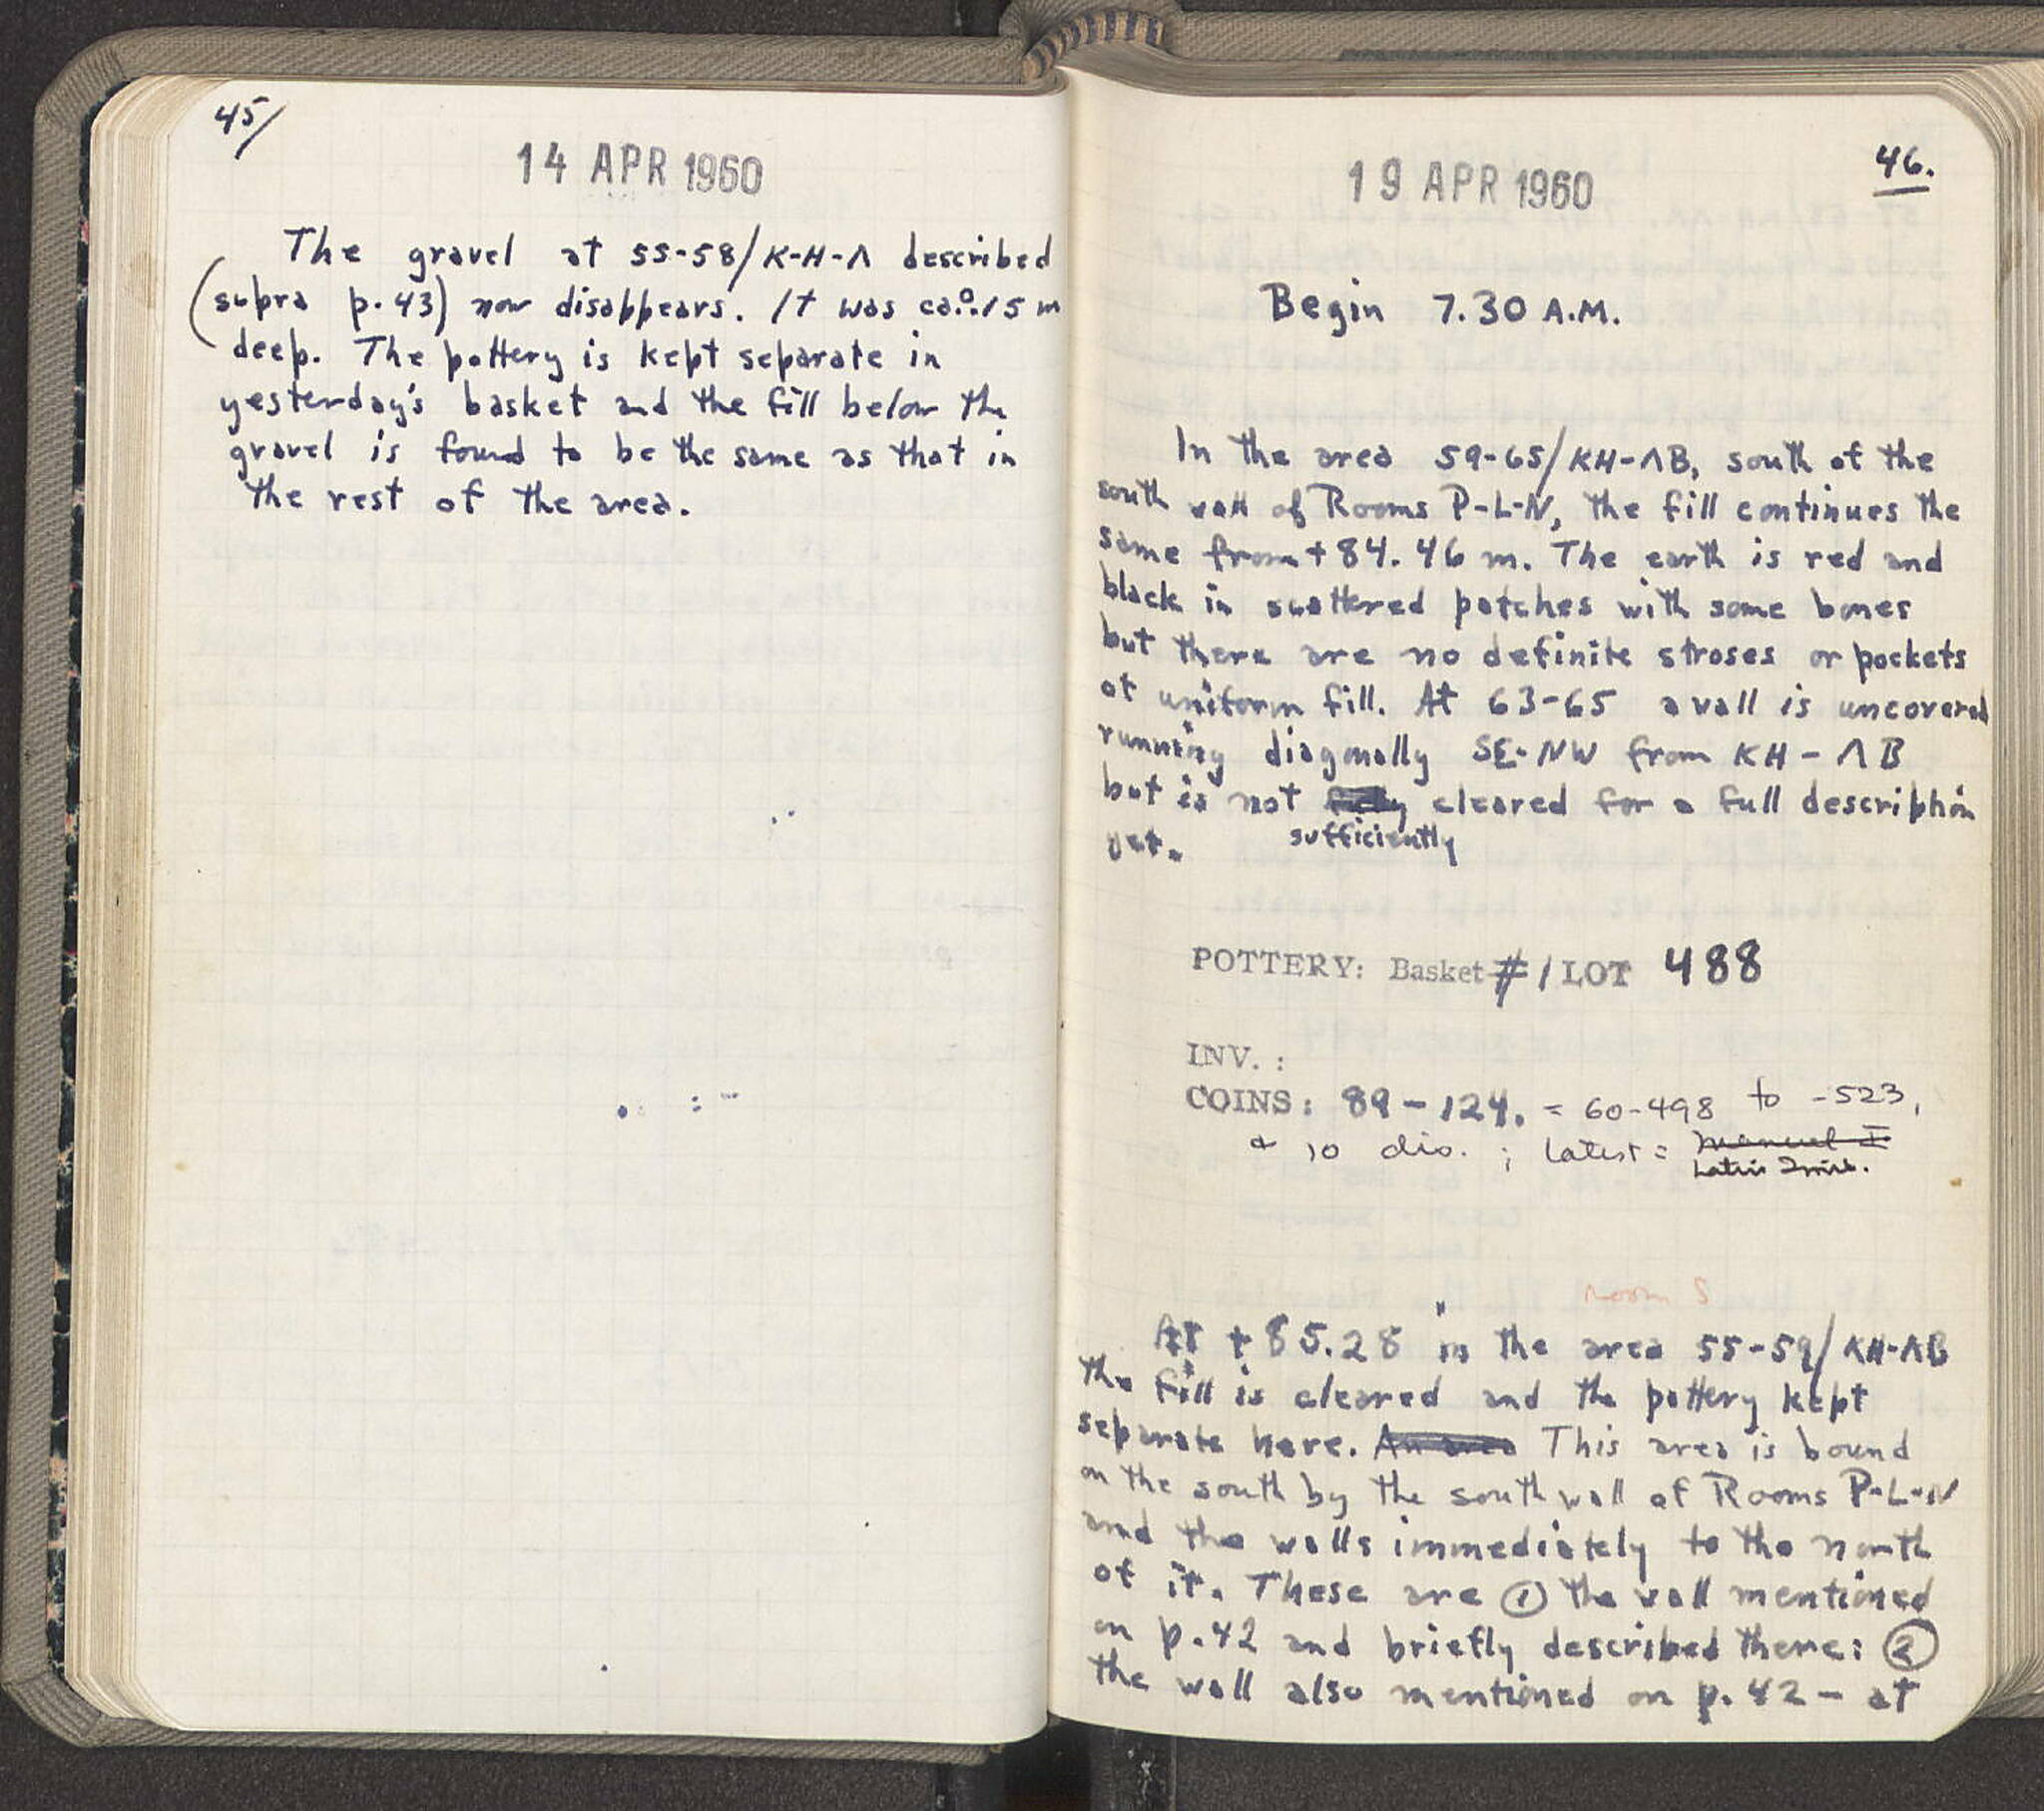 45/
14 APR 1960
The gravel at 55-58/K-H-Λ described
(supra p.43) now disappears. It was ca. 0.15 m
deep. The pottery is kept separate in
yesterday's basket and the fill below the
gravel is found to be the same as that in
the rest of the area.
46.
19 APR 1960
Begin 7.30 A.M.
In the area 59-65/KH-ΛB, south of the
south wall of Rooms P-L-N, the fill continues the
same from +84.46 m. The earth is red and
black in scattered patches with some bones
but there are no definite stroses or pockets
of uniform fill. At 63-65 a wall is uncovered
running diagonally SE-NW from KH-ΛB
but is not fully cleared for a full description
sufficiently
yet.
POTTERY: Basket #1 LOT 488
INV. :
COINS: 89-124. = 60-498 to -523,
+ 10 dis. ; latest = Manuel I
Latin Imit.
Room S
At +85.28 in the area 55-59/KH-ΛB
the fill is cleared and the pottery kept
separate here. An area This area is bound
on the south by the south wall of Rooms P-L-N
and the walls immediately to the north
of it. These are ① the wall mentioned
on p.42 and briefly described there; ②
the wall also mentioned on p.42 – at